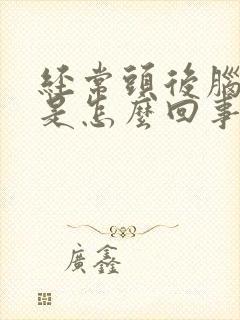 經常頭後腦
是怎麼回事
廣鑫